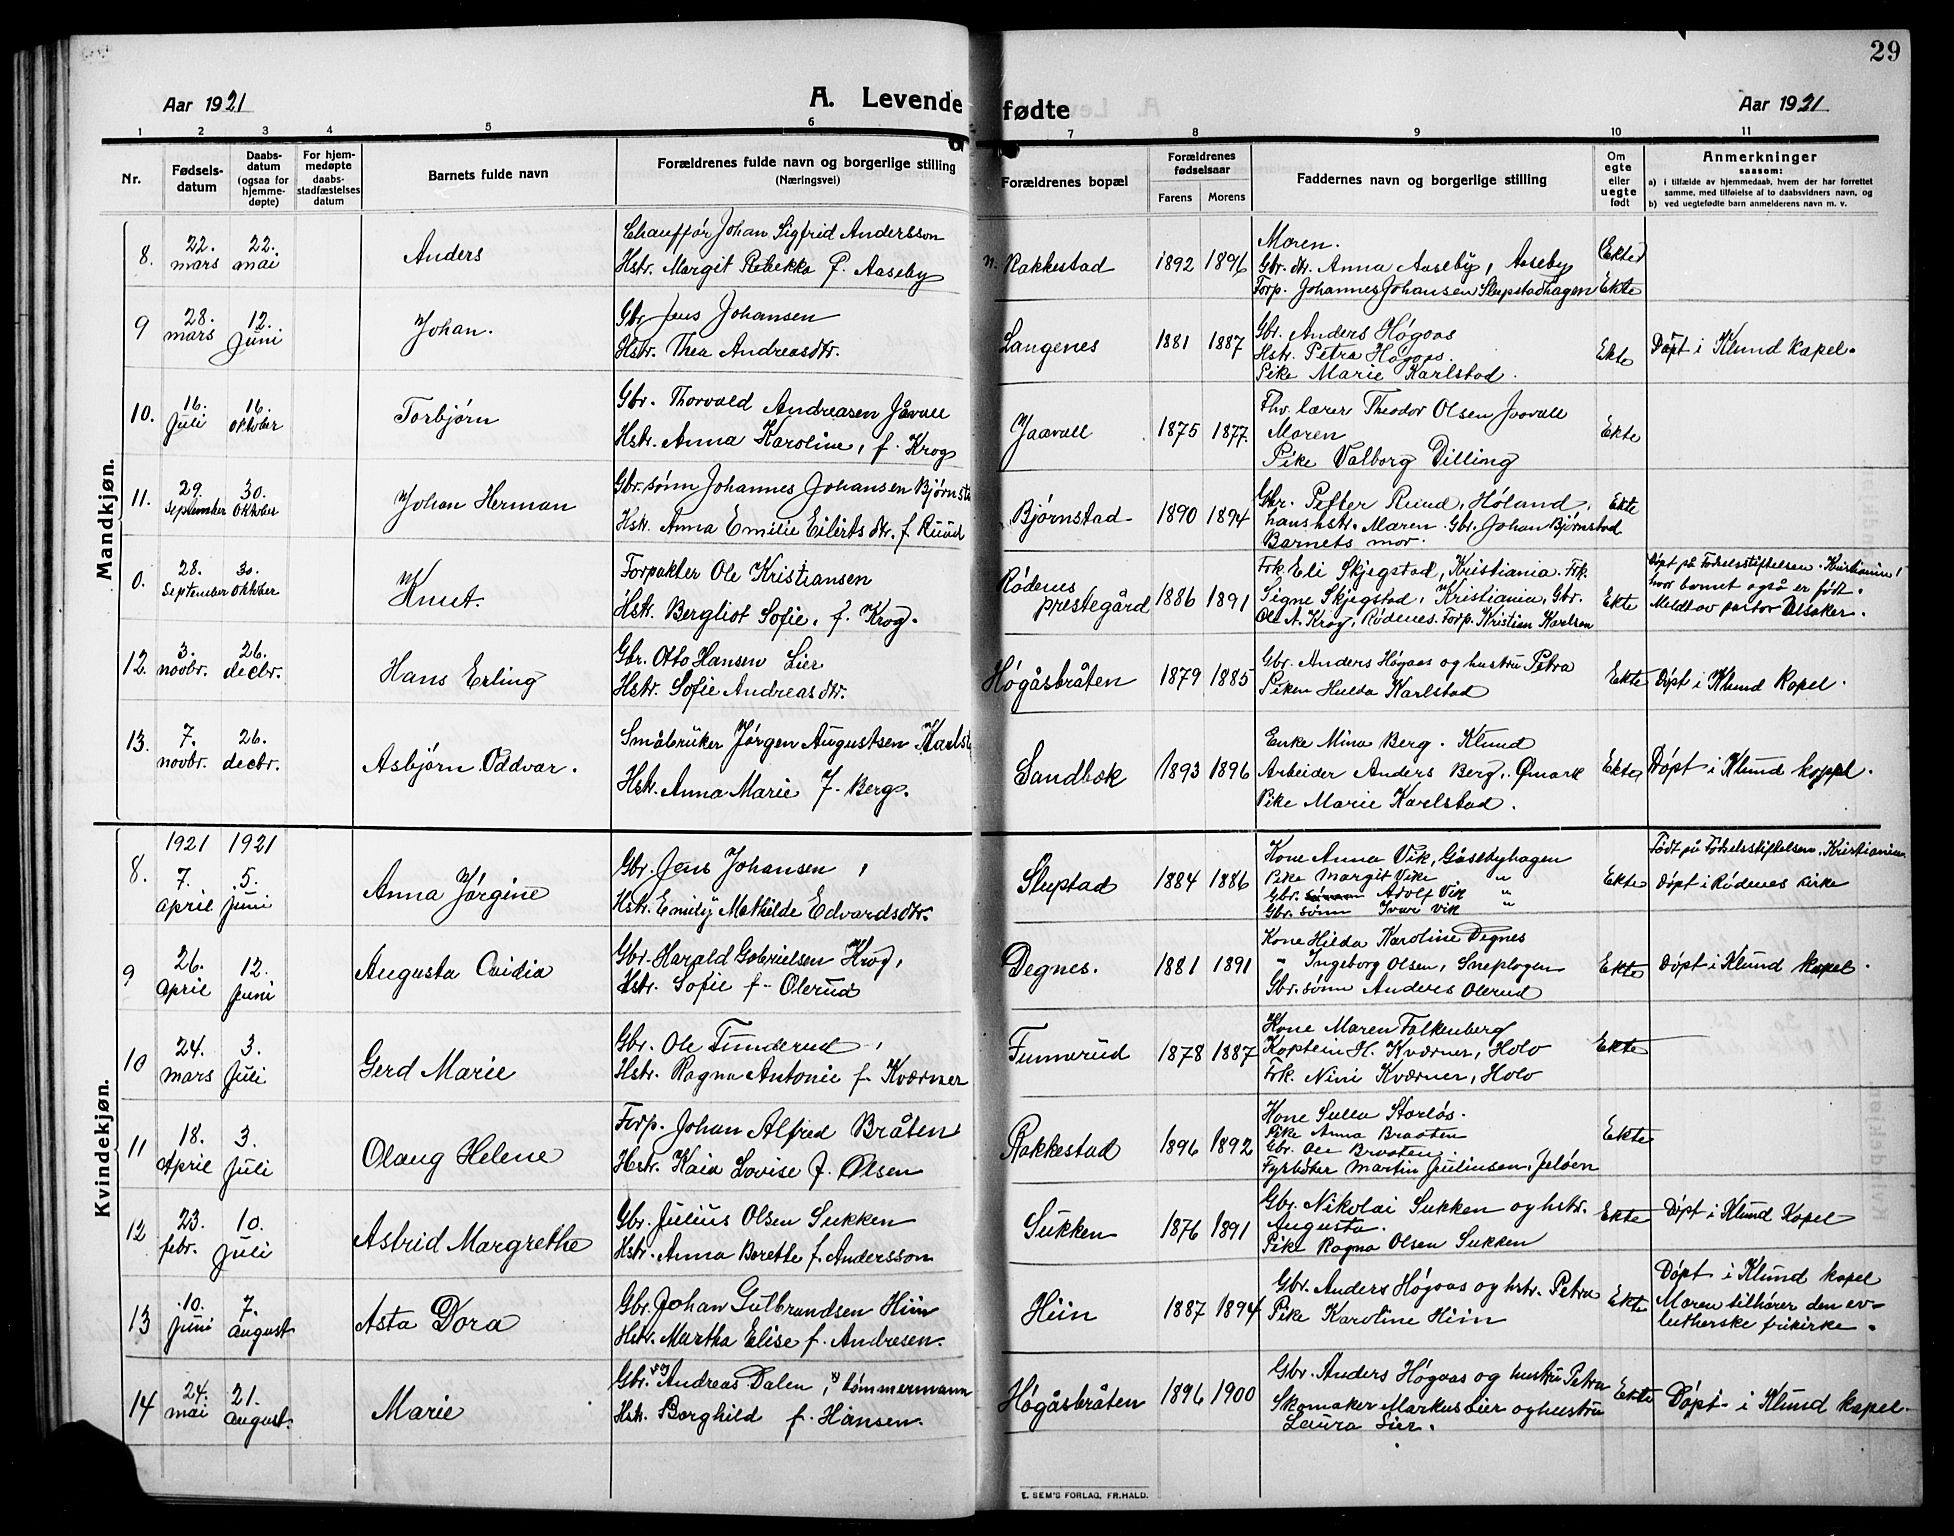 29
Aar 1921 A. Levende fødte Aar 1921
1 2 3 4 5 6 7 8 9 10 11
Nr. Fødsels-datum Daabs-datum (ogsaa for hjemme-døpte) For hjem-medøpte daabs-stadfæstelses datum Barnets fulde navn Forældrenes fulde navn og borgerlige stilling (Næringsvei) Forældrenes bopæl Forældrenes fødselsaar Farens Morens Faddernes navn og borgerlige stilling Om egte eller uegte født Anmerkninger saasom:
a) i tilfælde av hjemmedaab, hvem der har forrettet samme, med tilføielse af to daabsvidners navn, og
b) ved uegtefødte barn anmelderens navn m. v.
Mandkjøn.
8. 22. mars 22. mai Anders
Chauffør Johan Sigfrid Andersson
Hstr. Margit Rebekka f. Aaseby
n. Rakkestad 1892 1896
Moren.
Gbr. dtr. Anna Aaseby, Aaseby
Forp. Johannes Johansen Slupstadhagen
(Ekte)
Ekte
9 28. mars 12. Juni Johan.
Gbr Jens Johansen
Hstr. Thea Andreasdtr.
Langenes 1881 1887
Gbr. Anders Høgaas
Hstr. Petra Høgaas.
Pike Marie Karlstad.
Ekte Døpt i Klund Kapel.
10. 16. Juli 16. oktober Torbjørn
Gbr. Thorvald Andreasen Jåvall
Hstr. Anna Karoline, f. Krog
Jaavall 1875 1877.
Fhv. lærer Theodor Olsen Jaavall
Moren
Pike Valborg Dilling
Ekte
11. 29. September 30. Oktober Johan Herman
Gbr. sønn Johannes Johansen Bjørnst
Hstr. Anna Emilie Eilertsdtr. f. Ruud
Bjørnstad 1890 1894
Gbr. Petter Ruud, Høland,
hans hstr. Maren. Gbr. Johan Bjørnstad
Barnets mor.
Ekte
0. 28. September 30. oktober Knut.
Forpakter Ole Kristiansen
Hstr. Bergliot Sofie, f. Krog.
Rødenes prestegård 1886 1891
Frk. Eli Skjegstad, Kristiania. Frk.
Signe Skjegstad, Kristiania, Gbr.
Ole A. Krog, Rødenes. Forp. Kristian Karlsen
Ekte
Døpt på Fødselsstiftelsen Kristiania,
hvor barnet også er født.
Meldt av pastor Olsaker.
12. 3. novbr. 26. decbr. Hans Erling
Gbr. Otto Hansen Lier
Hstr. Sofie Andreasdtr.
Høgåsbråten 1879 1885
Gbr. Anders Høgaas og hustru Petra
Piken Hulda Karlstad
Ekte Døpt i Klund Kapel.
13. 7. novbr. 26. decbr. Asbjørn Oddvar.
Småbruker Jørgen Augustsen Karlst
Hstr. Anna Marie f. Berg.
Sandbæk 1893 1896
Enke Mina Berg. Klund
Arbeider Anders Berg, Ømark
Pike Marie Karlstad.
Ekte Døpt i Klund kappel.
Kvindekjøn.
1921 1921
8. 7. april 5. Juni Anna Jørgine
Gbr. Jens Johansen,
Hstr. Emily Mathilde Edvardsdtr.
Sluptad 1884 1886
Kone Anna Vik, Gåsebyhagen
Pike Margit Vike "
Gbr. Adolf Vik "
Gbr. sønn Ivar Vik "
Ekte
Født på Fødselsstiftelsen. Kristiania.
Døpt i Rødenes kirke
9 26. april 12. Juni Augusta Ovidia
Gbr. Harald Gabrielsen Krog,
Hstr. Sofie f. Olerud
Degnes. 1881 1891
Kone Hilda Karoline Degnes
" Ingeborg Olsen, Sneplogen
Gbr. sønn Anders Olerud
Ekte Døpt i Klund kapel.
10 24. mars 3. Juli Gerd Marie
Gbr. Ole Funderud,
Hstr. Ragna Antonie f. Kværner
Funnerud 1878 1887
Kone Maren Falkenberg
Kaptein H. Kværner, Holo
Frk. Nini Kværner, Holo
Ekte
11 18. April 3. Juli Olaug Helene
Forp. Johan Alfred Bråten
Hstr. Kaia Lovise f. Olsen
Rakkestad 1896 1892
Kone Sulla Storløs.
Pike Anna Braaten
Gbr. Ole Braaten.
Fyrbøter Martin Juliussen, Jeløen
Ekte
12 23. febr. 10. Juli Astrid Margrethe
Gbr. Julius Olsen Sukken
Hstr. Anna Borette f. Andersson
Sukken 1876 1891
Gbr. Nikolai Sukken og hstr.
Augusta.
Pike Ragna Olsen Sukken
Ekte Døpt i Klund Kapel
13 10. Juni 7. august Asta Dora
Gbr. Johan Gulbrandsen Hiin
Hstr. Martha Elise f. Andresen.
Hiin 1887 1894
Gbr. Anders Høgaas og hstr. Petra
Pike Karoline Hiin
Ekte
Døpt i Klund kapel
Moren tilhører den ev-
lutherske frikirke.
14 24. mai 21. august. Marie
Gbr. Andreas Dalen, tømmermann
Hstr. Borghild f. Hansen.
Høgåsbråten 1896 1900
Gbr. Anders Høgaas og hustru Petra
Skomaker Markus Lier og hustru
Laura Lier.
Ekte Døpt i Klund kapel.
E. SEM'S FORLAG, FR.HALD.